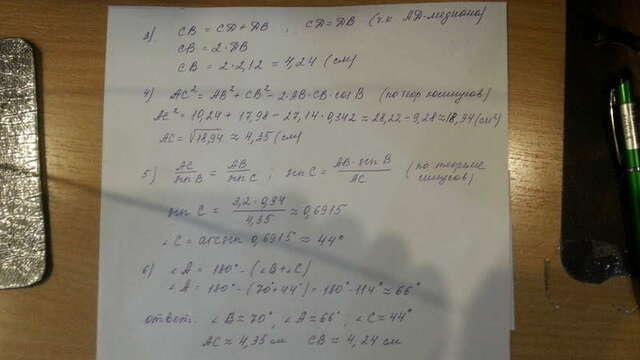 3) CB = CД + ДB ; CД = ДB (т.к АД-медиана)
CB = 2·ДB
CB = 2·2,12 = 4,24 (см)
4) AC² = AB² + CB² - 2·AB·CB·cos B (по теор косинусов)
AC² = 10,24 + 17,98 - 27,14·0,342 ≈ 28,22 - 9,28 ≈ 18,94 (см²)
AC = √18,94 ≈ 4,35 (см)
5) AC/sin B = AB/sin C ; sin C = AB·sin B/AC (по теореме синусов)
sin C = 3,2·0,94/4,35 ≈ 0,6915
∠C = arcsin 0,6915 ≈ 44°
6) ∠A = 180° - (∠B+∠C)
∠A = 180° - (70°+44°) = 180° - 114° ≈ 66°
ответ. ∠B = 70°, ∠A = 66°, ∠C = 44°
AC ≈ 4,35 см CB ≈ 4,24 см